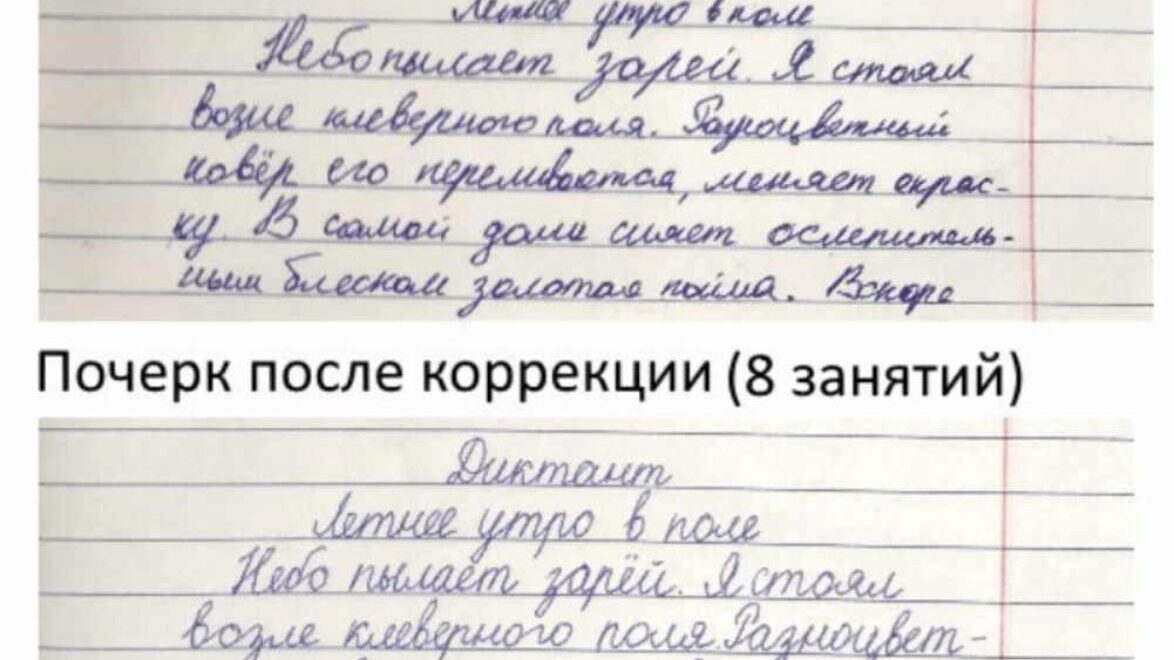 Летнее утро в поле
Небо пылает зарей. Я стоял
возле клеверного поля. Разноцветный
ковёр его переливается, меняет окрас-
ку. В самой дали сияет ослепитель-
ным блеском золотая пойма. Вскоре
Почерк после коррекции (8 занятий)
Диктант
Летнее утро в поле
Небо пылает зарёй. Я стоял
возле клеверного поля. Разноцвет-